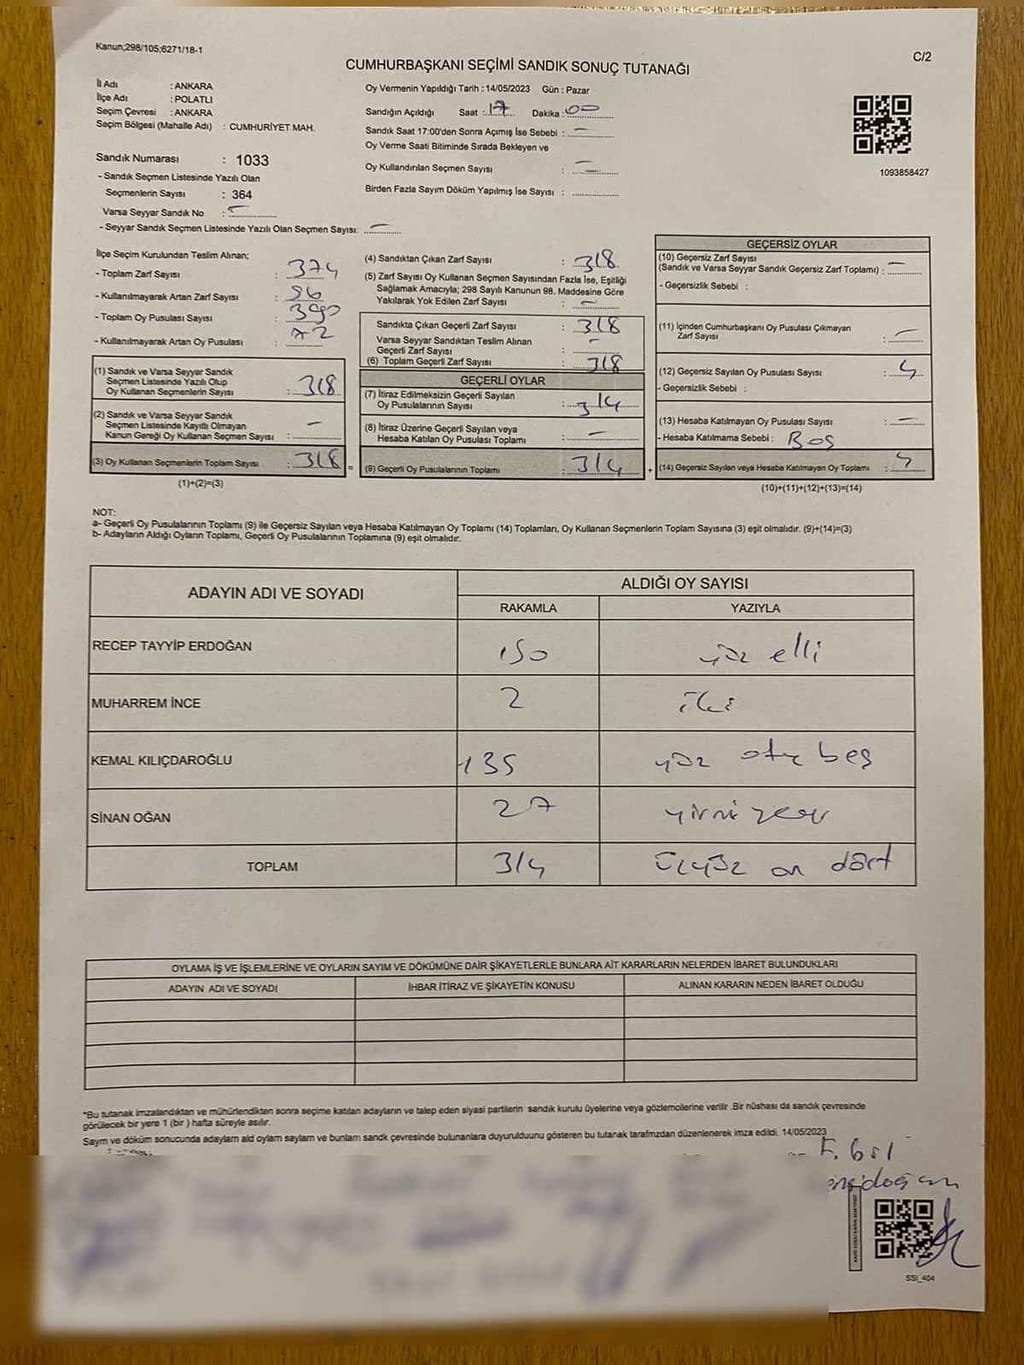 Kanun;298/105;6271/18-1
C/2
CUMHURBAŞKANI SEÇİMİ SANDIK SONUÇ TUTANAĞI
İl Adı : ANKARA
İlçe Adı : POLATLI
Seçim Çevresi : ANKARA
Seçim Bölgesi (Mahalle Adı) : CUMHURİYET MAH.
Sandık Numarası : 1033
- Sandık Seçmen Listesinde Yazılı Olan
Seçmenlerin Sayısı : 364
Varsa Seyyar Sandık No : -
- Seyyar Sandık Seçmen Listesinde Yazılı Olan Seçmen Sayısı: -
Oy Vermenin Yapıldığı Tarih : 14/05/2023 Gün : Pazar
Sandığın Açıldığı Saat : 17 Dakika : 00
Sandık Saat 17:00'den Sonra Açımış İse Sebebi : -
Oy Verme Saati Bitiminde Sırada Bekleyen ve
Oy Kullandırılan Seçmen Sayısı : -
Birden Fazla Sayım Döküm Yapılmış İse Sayısı :
1093858427
İlçe Seçim Kurulundan Teslim Alınan;
- Toplam Zarf Sayısı : 374
- Kullanılmayarak Artan Zarf Sayısı : 56
- Toplam Oy Pusulası Sayısı : 390
- Kullanılmayarak Artan Oy Pusulası : 72
(1) Sandık ve Varsa Seyyar Sandık
Seçmen Listesinde Yazılı Olup
Oy Kullanan Seçmenlerin Sayısı : 318
(2) Sandık ve Varsa Seyyar Sandık
Seçmen Listesinde Kayıtlı Olmayan
Kanun Gereği Oy Kullanan Seçmen Sayısı : -
(3) Oy Kullanan Seçmenlerin Toplam Sayısı : 318 =
(1)+(2)=(3)
(4) Sandıktan Çıkan Zarf Sayısı : 318
(5) Zarf Sayısı Oy Kullanan Seçmen Sayısından Fazla İse, Eşitliği
Sağlamak Amacıyla; 298 Sayılı Kanunun 98. Maddesine Göre
Yakılarak Yok Edilen Zarf Sayısı : -
Sandıkta Çıkan Geçerli Zarf Sayısı : 318
Varsa Seyyar Sandıktan Teslim Alınan
Geçerli Zarf Sayısı : -
(6) Toplam Geçerli Zarf Sayısı : 318
GEÇERLİ OYLAR
(7) İtiraz Edilmeksizin Geçerli Sayılan
Oy Pusulalarının Sayısı : 314
(8) İtiraz Üzerine Geçerli Sayılan veya
Hesaba Katılan Oy Pusulası Toplamı : -
(9) Geçerli Oy Pusulalarının Toplamı : 314 +
GEÇERSİZ OYLAR
(10) Geçersiz Zarf Sayısı
(Sandık ve Varsa Seyyar Sandık Geçersiz Zarf Toplamı) : -
- Geçersizlik Sebebi :
(11) İçinden Cumhurbaşkanı Oy Pusulası Çıkmayan
Zarf Sayısı : -
(12) Geçersiz Sayılan Oy Pusulası Sayısı : 4
- Geçersizlik Sebebi :
(13) Hesaba Katılmayan Oy Pusulası Sayısı : -
- Hesaba Katılmama Sebebi : Boş
(14) Geçersiz Sayılan veya Hesaba Katılmayan Oy Toplamı : 4
(10)+(11)+(12)+(13)=(14)
NOT:
a- Geçerli Oy Pusulalarının Toplamı (9) ile Geçersiz Sayılan veya Hesaba Katılmayan Oy Toplamı (14) Toplamları, Oy Kullanan Seçmenlerin Toplam Sayısına (3) eşit olmalıdır. (9)+(14)=(3)
b- Adayların Aldığı Oyların Toplamı, Geçerli Oy Pusulalarının Toplamına (9) eşit olmalıdır.
ADAYIN ADI VE SOYADI ALDIĞI OY SAYISI
RAKAMLA YAZIYLA
RECEP TAYYİP ERDOĞAN 150 yüz elli
MUHARREM İNCE 2 iki
KEMAL KILIÇDAROĞLU 135 yüz otuz beş
SİNAN OĞAN 27 yirmi yedi
TOPLAM 314 üçyüz on dört
OYLAMA İŞ VE İŞLEMLERİNE VE OYLARIN SAYIM VE DÖKÜMÜNE DAİR ŞİKAYETLERLE BUNLARA AİT KARARLARIN NELERDEN İBARET BULUNDUKLARI
ADAYIN ADI VE SOYADI İHBAR İTİRAZ VE ŞİKAYETİN KONUSU ALINAN KARARIN NEDEN İBARET OLDUĞU
*Bu tutanak imzalandıktan ve mühürlendikten sonra seçime katılan adayların ve talep eden siyasi partilerin sandık kurulu üyelerine veya gözlemcilerine verilir .Bir nüshası da sandık çevresinde
görülecek bir yere 1 (bir ) hafta süreyle asılır.
Sayım ve döküm sonucunda adayların ald oyların sayların ve bunların sandk çevresinde bulunanlara duyurulduunu gösteren bu tutanak tarafmzdan düzenlenerek imza edildi. 14/05/2023
SSI_404